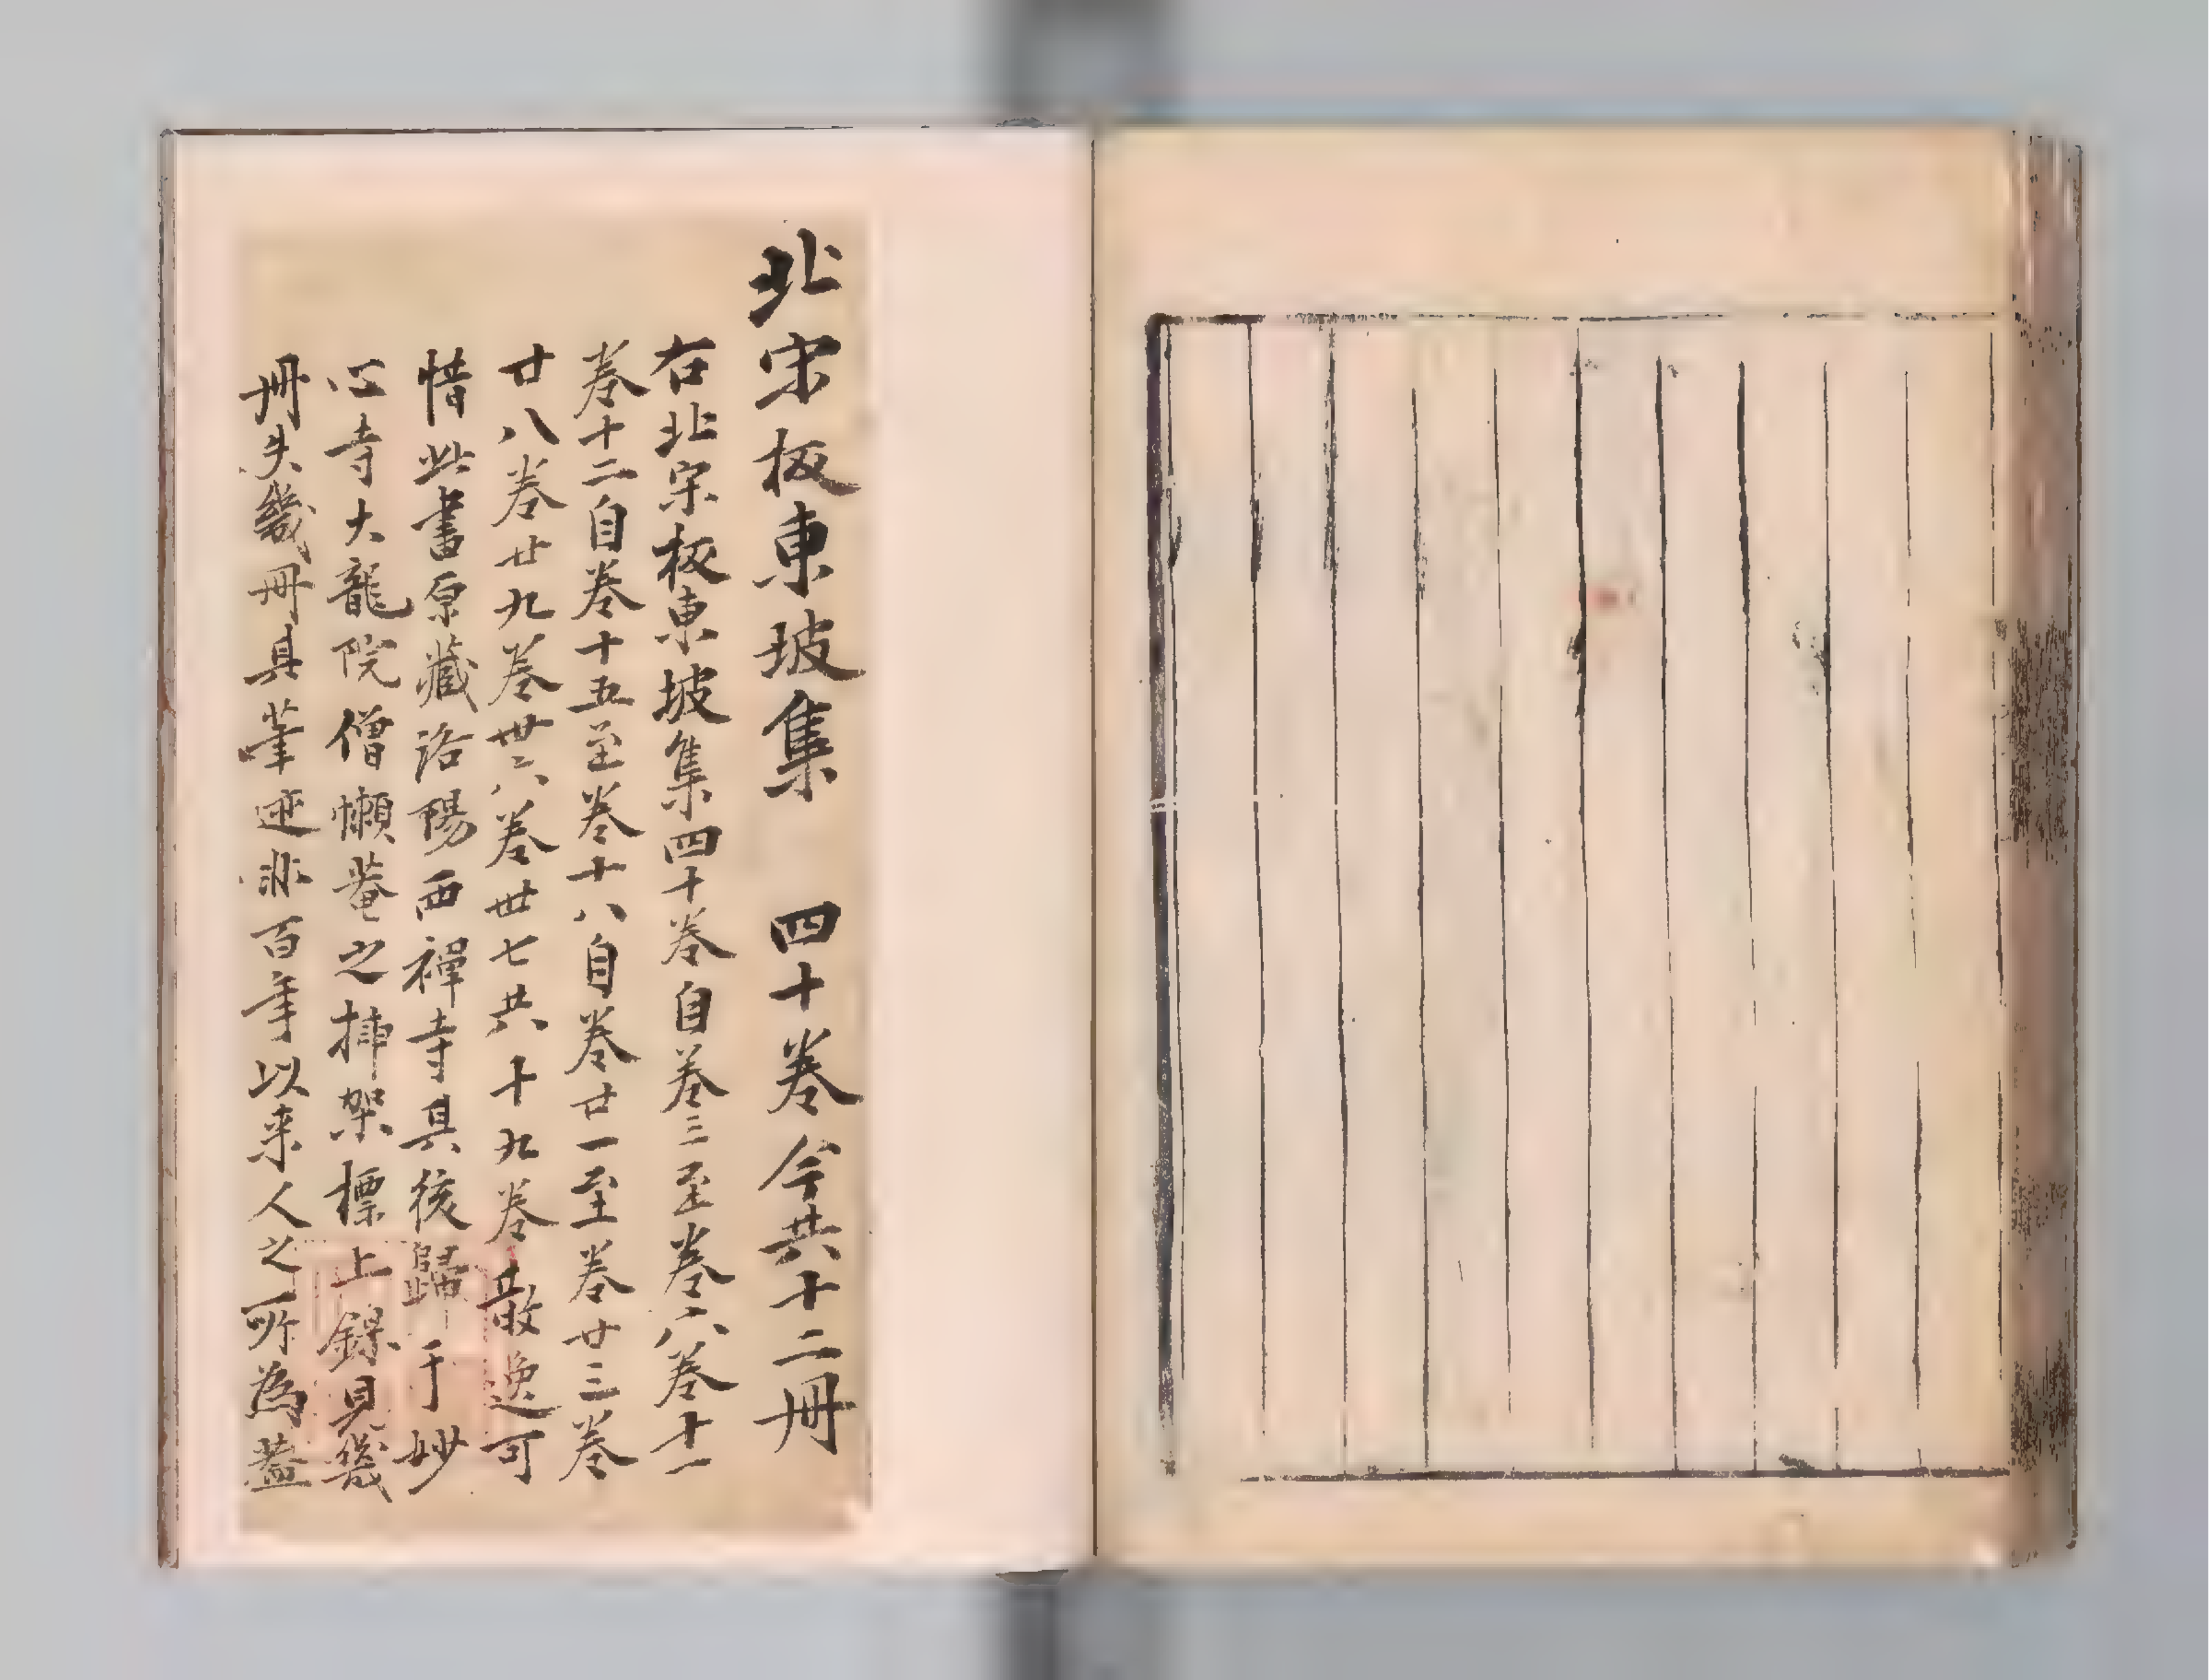 北宋板東坡集 四十卷今共十二冊
右北宋板東坡集四十卷自卷三至卷六卷十一
卷十二自卷十五至卷十八自卷廿一至卷廿三卷
廿八卷廿九卷卅六卷卅七共十九卷散逸可
惜此書原藏洛陽西禪寺其後歸于妙
心寺大龍院僧懶菴之揷架標上錄見幾
冊失幾冊其筆迹非百年以来人之所為蓋